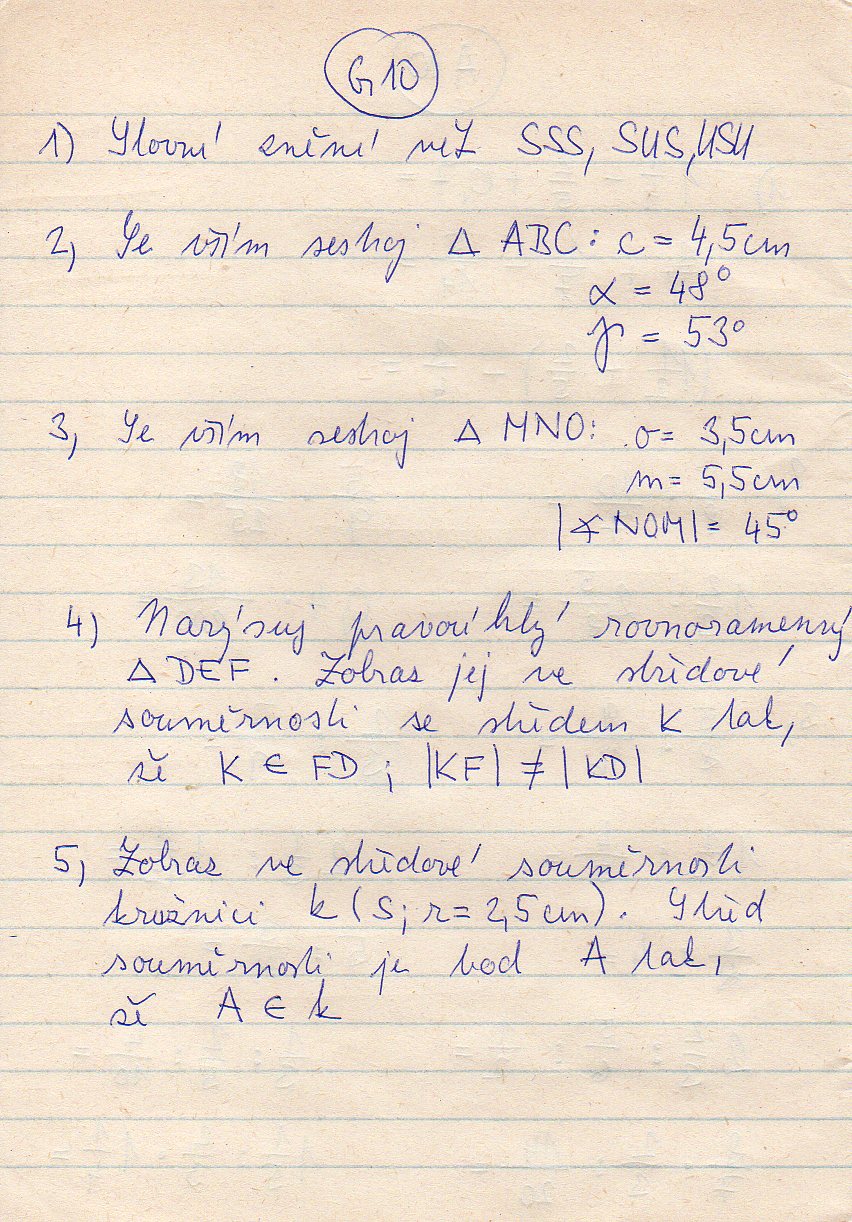 G10
1) Slovní znění vět SSS, SUS, USU
2, Se vším sestroj △ ABC: c = 4,5cm
α = 48°
γ = 53°
3, Se vším sestroj △ MNO: o = 3,5cm
m = 5,5cm
|∢NOM| = 45°
4) Narýsuj pravoúhlý rovnoramenný
△ DEF. Zobraz jej ve středové
souměrnosti se středem K tak,
že K ∈ FD; |KF| ≠ |KD|
5, Zobraz ve středové souměrnosti
kružnici k (S; r = 2,5cm). Střed
souměrnosti je bod A tak,
že A ∈ k